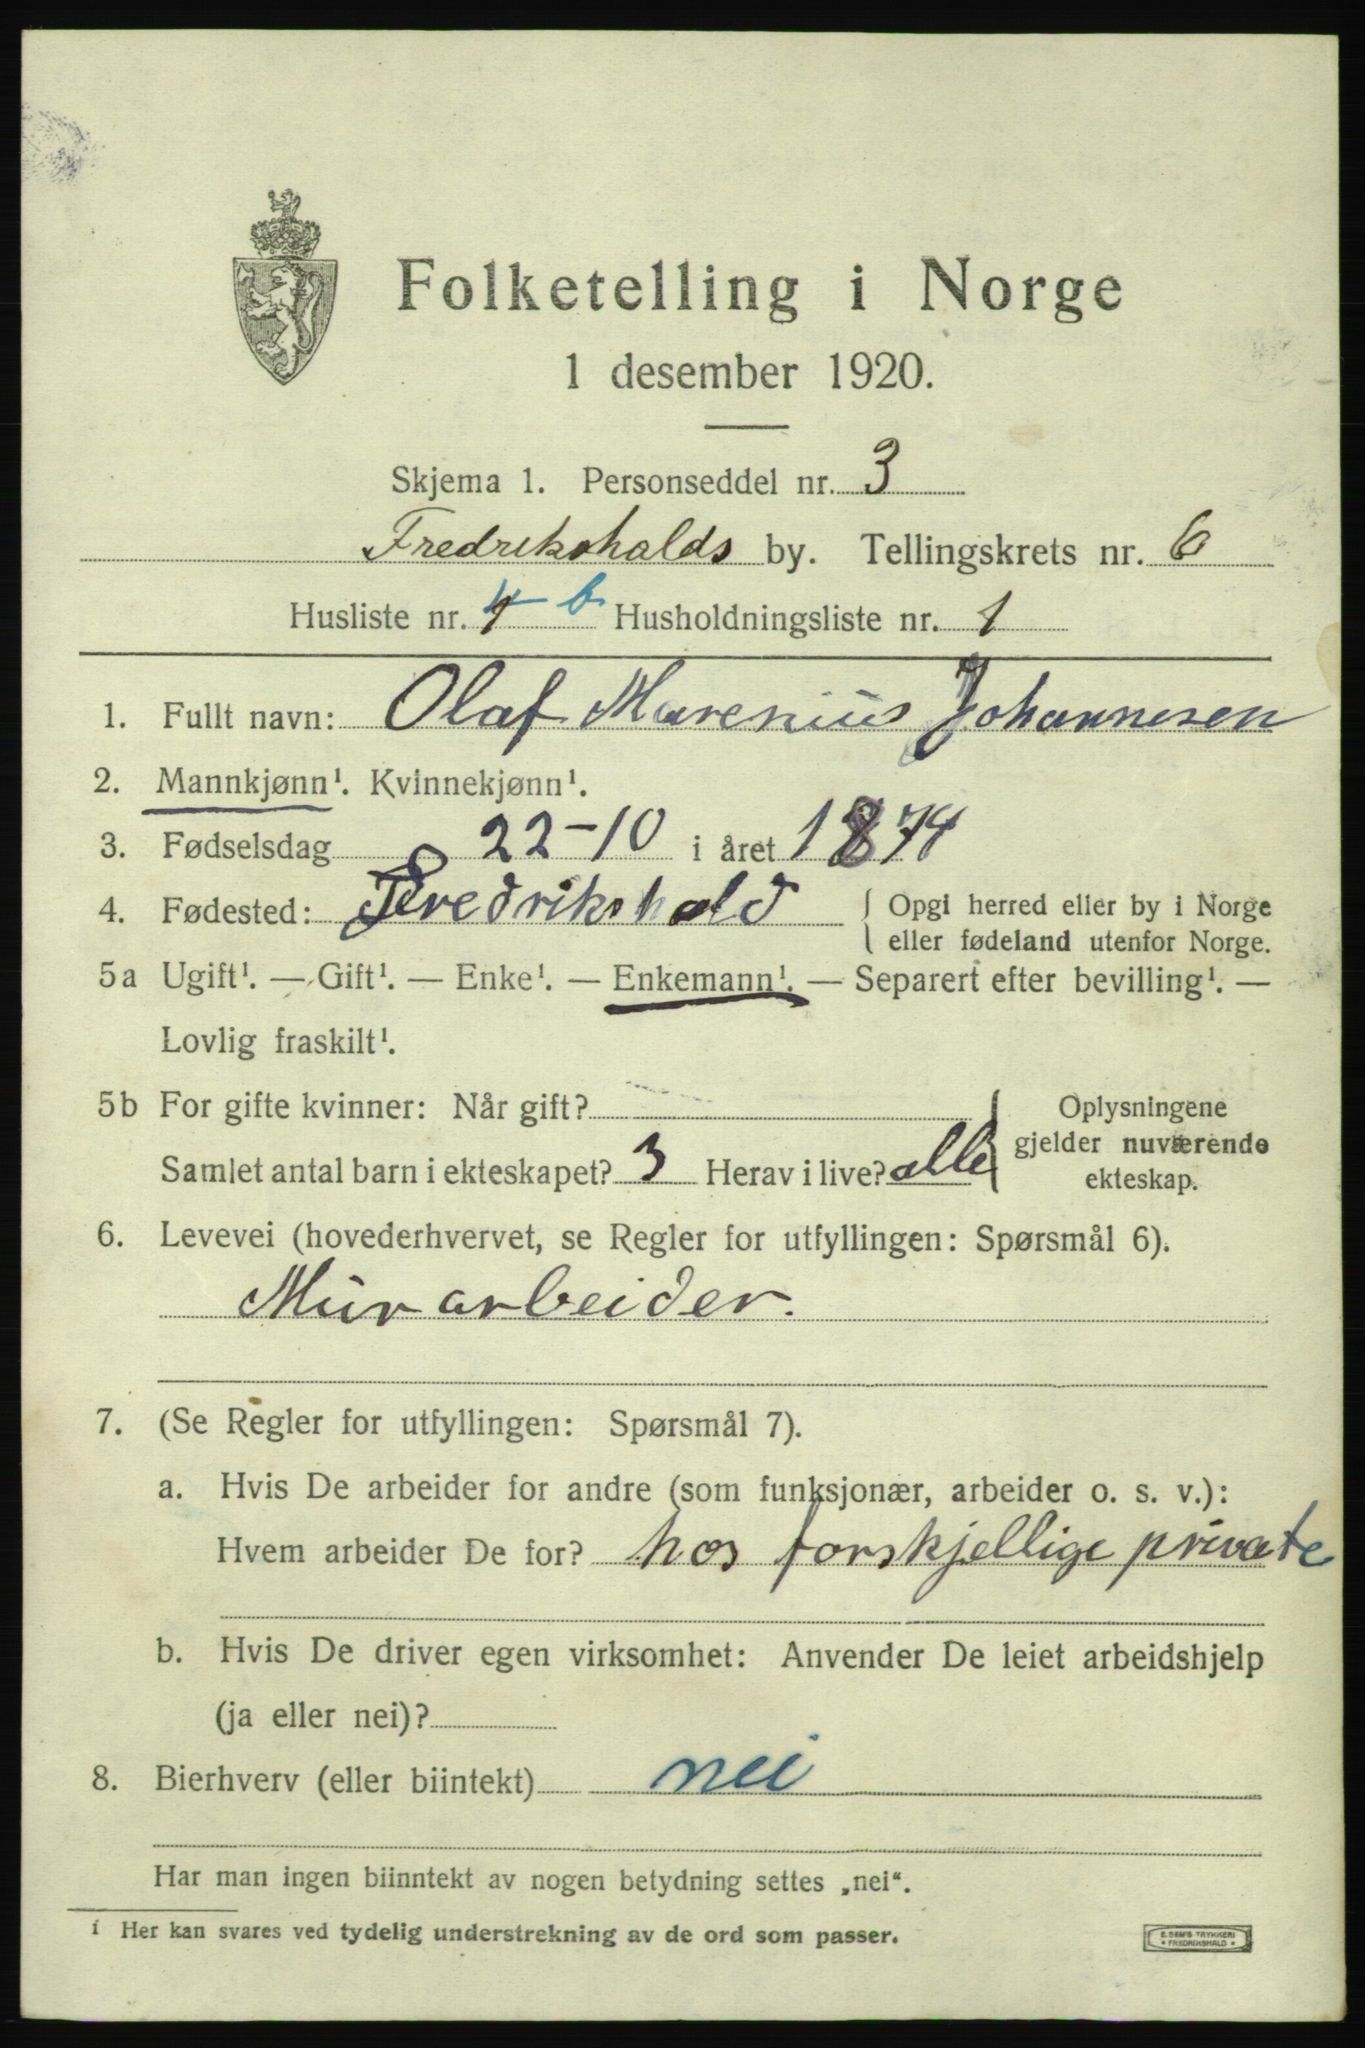 Folketelling i Norge
1 desember 1920.
Skjema 1. Personseddel nr. 3
Fredrikshalds by. Tellingskrets nr. 6
Husliste nr. 4 b Husholdningsliste nr. 1
1. Fullt navn: Olaf Marenius Johannesen
2. Mannkjønn¹. Kvinnekjønn¹.
3. Fødselsdag 22-10 i året 1874
4. Fødested: Fredrikshald { Opgi herred eller by i Norge
{ eller fødeland utenfor Norge.
5a Ugift¹. — Gift¹. — Enke¹. — Enkemann¹. — Separert efter bevilling¹. —
Lovlig fraskilt¹.
5b For gifte kvinner: Når gift?
Samlet antal barn i ekteskapet? 3 Herav i live? alle
Oplysningene
gjelder nuværende
ekteskap.
6. Levevei (hovederhvervet, se Regler for utfyllingen: Spørsmål 6).
Murarbeider.
7. (Se Regler for utfyllingen: Spørsmål 7).
a. Hvis De arbeider for andre (som funksjonær, arbeider o. s. v.):
Hvem arbeider De for? hos forskjellige private
b. Hvis De driver egen virksomhet: Anvender De leiet arbeidshjelp
(ja eller nei)?
8. Bierhverv (eller biintekt) nei
Har man ingen biinntekt av nogen betydning settes „nei“.
1 Her kan svares ved tydelig understrekning av de ord som passer.
E. SEM'S TRYKKERI
* FREDRIKSHALD *